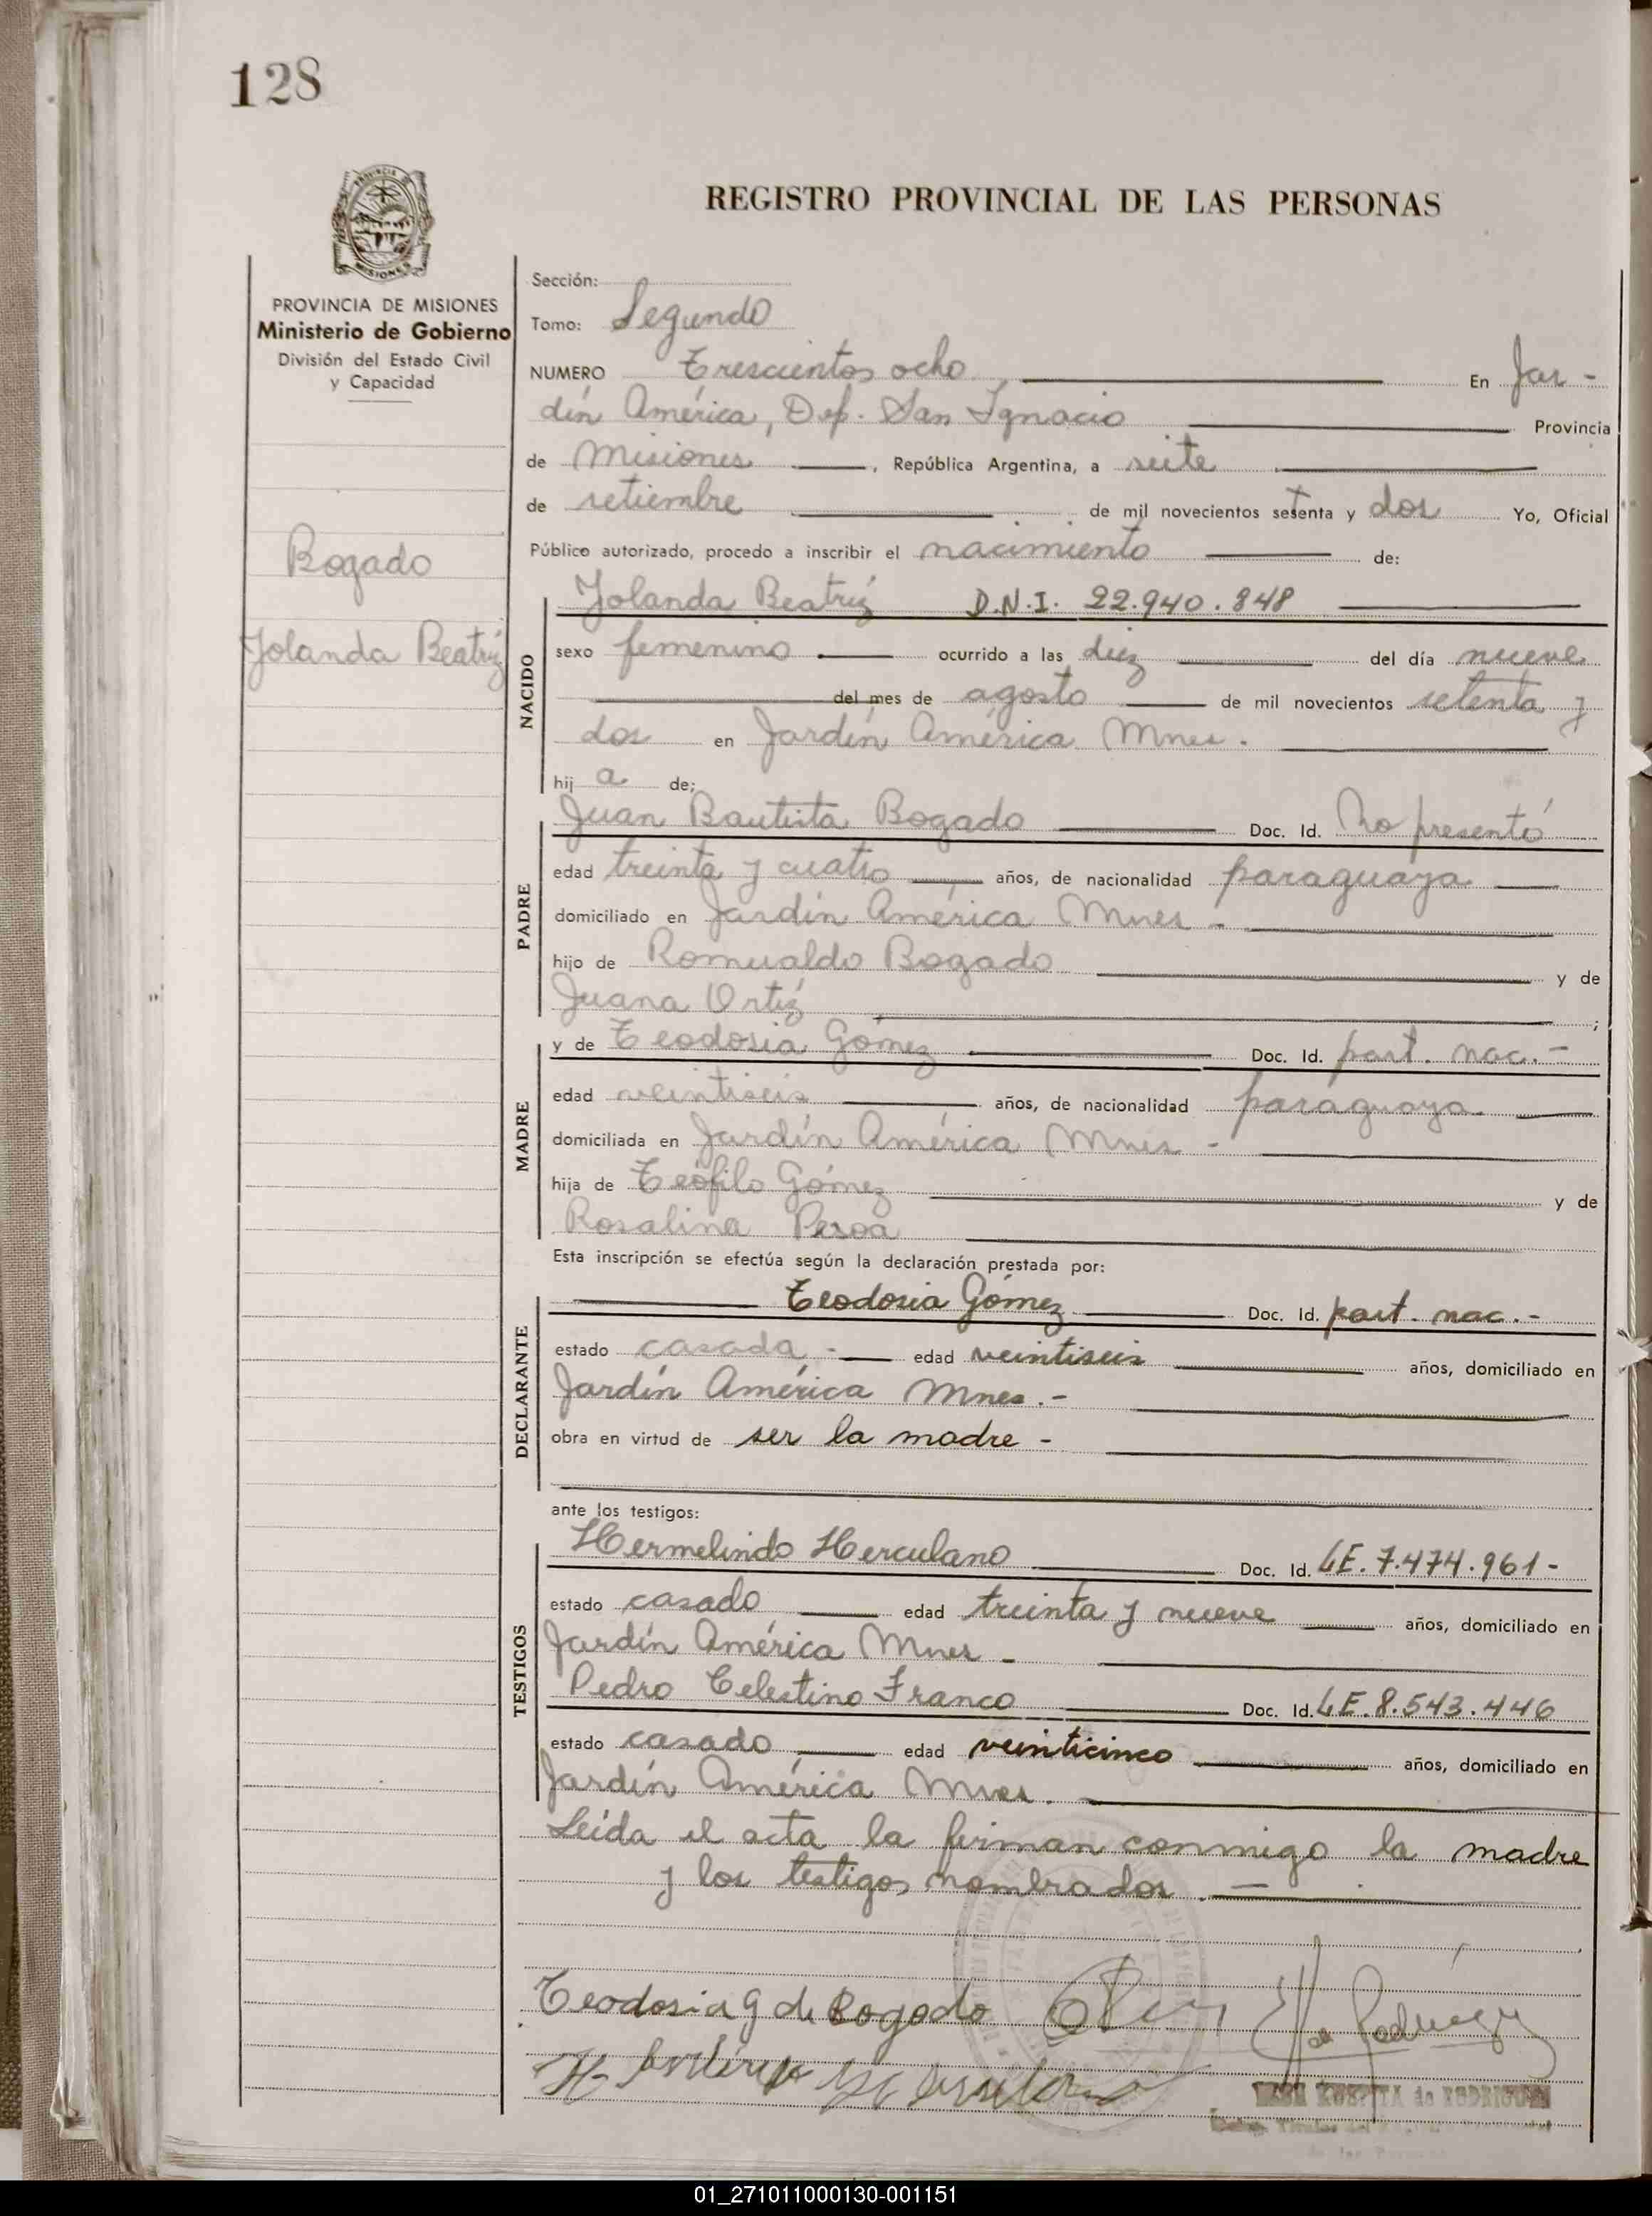 128
REGISTRO PROVINCIAL DE LAS PERSONAS
PROVINCIA DE MISIONES
Ministerio de Gobierno
División del Estado Civil
y Capacidad
Bogado
Yolanda Beatríz
Sección:
Tomo: Segundo
NUMERO Trescientos ocho En Jar-
dín América, Dep. San Ignacio Provincia
de Misiones, República Argentina, a siete
de setiembre de mil novecientos setenta y dos Yo, Oficial
Público autorizado, procedo a inscribir el nacimiento de:
NACIDO
Yolanda Beatríz D.N.I. 22.940.848
sexo femenino ocurrido a las diez del día nueve
del mes de agosto de mil novecientos setenta y
dos en Jardín América Mnes.
hij a de;
PADRE
Juan Bautista Bogado Doc. Id. No presentó
edad treinta y cuatro años, de nacionalidad paraguaya
domiciliado en Jardín América Mnes -
hijo de Romualdo Bogado y de
Juana Ortíz ;
MADRE
y de Teodosia Gómez Doc. Id. part. nac.-
edad veintiseis años, de nacionalidad paraguaya
domiciliada en Jardín América Mnes -
hija de Teófilo Gómez y de
Rosalina Peroa
Esta inscripción se efectúa según la declaración prestada por:
DECLARANTE
Teodosia Gómez Doc. Id. part. nac.-
estado casada - edad veintiseis años, domiciliado en
Jardín América Mnes.-
obra en virtud de ser la madre -
ante los testigos:
TESTIGOS
Hermelindo Herculano Doc. Id. LE. 7.474.961-
estado casado edad treinta y nueve años, domiciliado en
Jardín América Mnes -
Pedro Celestino Franco Doc. Id. LE. 8.543.446
estado casado edad veinticinco años, domiciliado en
Jardín América Mnes.
Leída el acta la firman conmigo la madre
y los testigos nombrados.-
Teodosia G de Bogado
de Rodríguez
de RODRIGUEZ
01_271011000130-001151